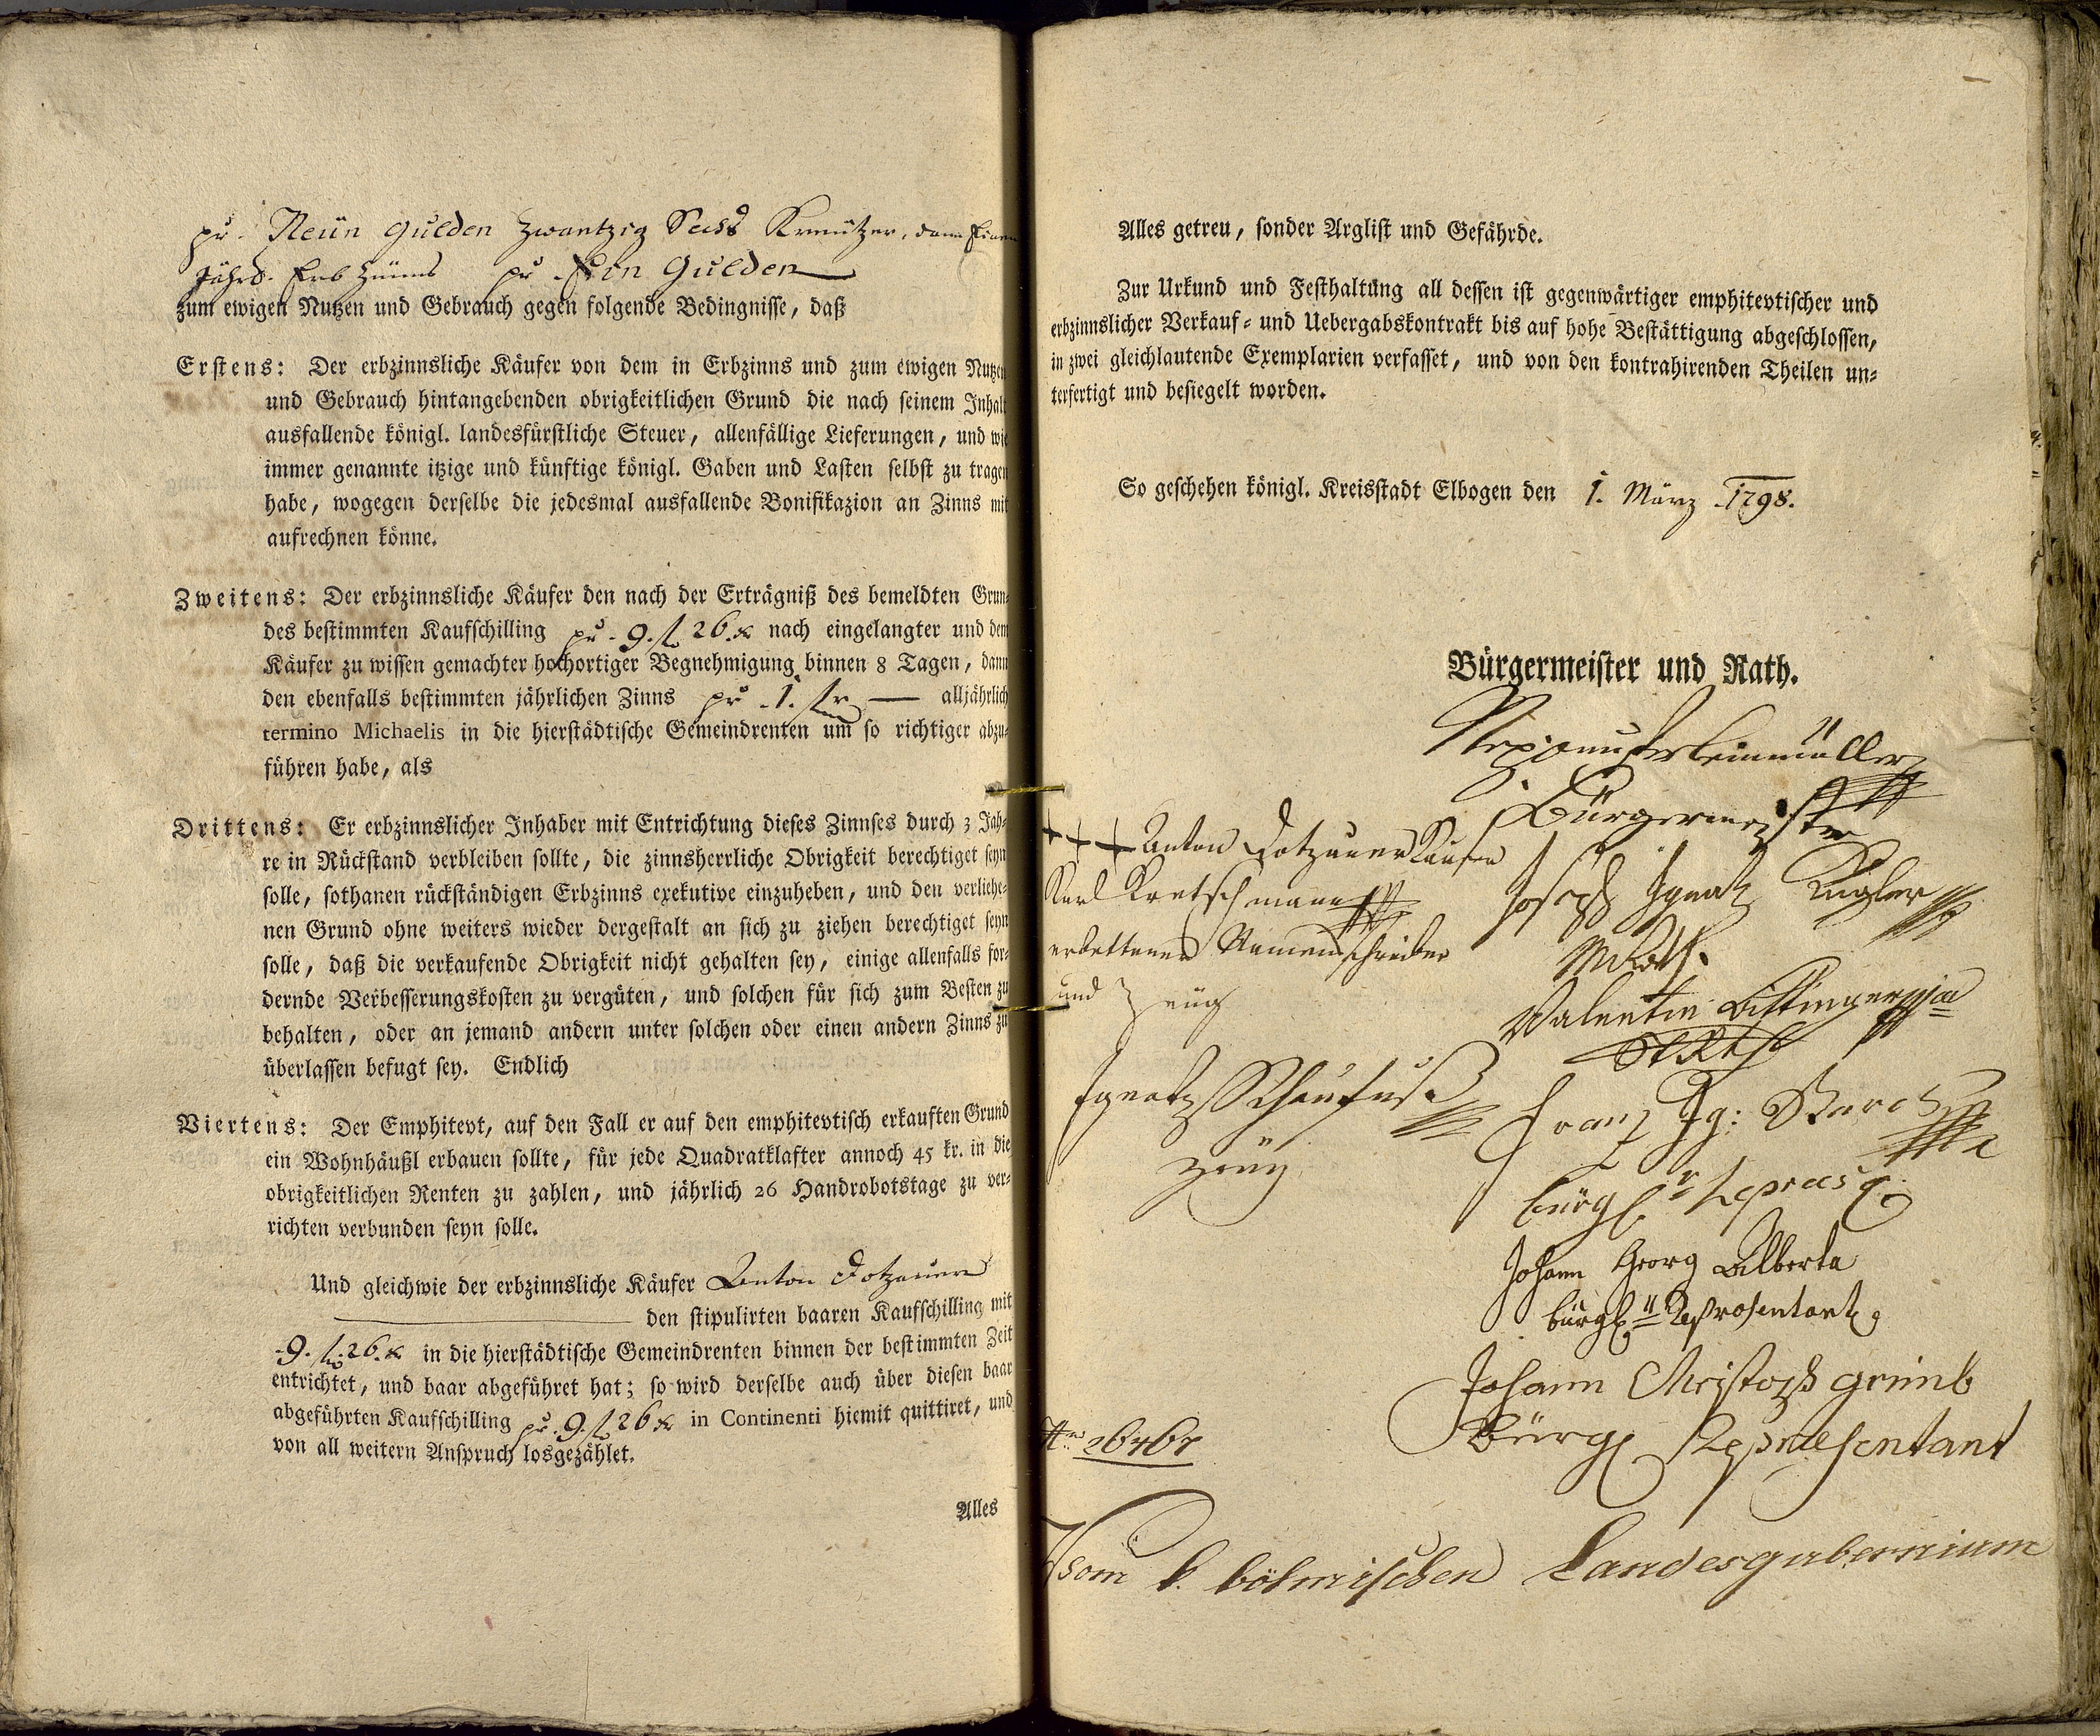 pr. Neün Gulden Zwantzig Sechs Kreützer, dann Einen
Jährl. Erb Zünns pr. Ein Gulden
zum ewigen Nutzen und Gebrauch gegen folgende Bedingnisse, daß
Erstens: Der erbzinnsliche Käufer von dem in Erbzinns und zum ewigen Nutzen
und Gebrauch hintangebenden obrigkeitlichen Grund die nach seinem Inhalt
ausfallende königl. landesfürstliche Steuer, allenfällige Lieferungen, und wie
immer genannte itzige und künftige königl. Gaben und Lasten selbst zu tragen
habe, wogegen derselbe die jedesmal ausfallende Bonifikazion an Zinns mit
aufrechnen könne.
Zweitens: Der erbzinnsliche Käufer den nach der Erträgniß des bemeldten Grun-
des bestimmten Kaufschilling pr. 9. f. 26. x nach eingelangter und dem
Käufer zu wissen gemachter hochortiger Begnehmigung binnen 8 Tagen, dann
den ebenfalls bestimmten jährlichen Zinns pr. 1. fr — alljährlich
termino Michaelis in die hierstädtische Gemeindrenten um so richtiger abzu-
führen habe, als
Drittens: Er erbzinnslicher Inhaber mit Entrichtung dieses Zinnses durch 3 Jah-
re in Rückstand verbleiben sollte, die zinnsherrliche Obrigkeit berechtiget seyn
solle, sothanen rückständigen Erbzinns exekutive einzuheben, und den verliehe-
nen Grund ohne weiters wieder dergestalt an sich zu ziehen berechtiget seyn
solle, daß die verkaufende Obrigkeit nicht gehalten sey, einige allenfalls for-
dernde Verbesserungskosten zu vergüten, und solchen für sich zum Besten zu
behalten, oder an jemand andern unter solchen oder einen andern Zinns zu
überlassen befugt sey. Endlich
Viertens: Der Emphitevt, auf den Fall er auf den emphitevtisch erkauften Grund
ein Wohnhäußl erbauen sollte, für jede Quadratklafter annoch 45 kr. in die
obrigkeitlichen Renten zu zahlen, und jährlich 26 Handrobotstage zu ver-
richten verbunden seyn solle.
Und gleichwie der erbzinnsliche Käufer Anton Dotzauer
den stipulirten baaren Kaufschilling mit
9. f. 26. x in die hierstädtische Gemeindrenten binnen der bestimmten Zeit
entrichtet, und baar abgeführet hat; so wird derselbe auch über diesen baar
abgeführten Kaufschilling pr. 9. f. 26 x in Continenti hiemit quittiret, und
von all weitern Anspruch losgezählet.
Alles
Alles getreu, sonder Arglist und Gefährde.
Zur Urkund und Festhaltung all dessen ist gegenwärtiger emphitevtischer und
erbzinnslicher Verkauf- und Uebergabskontrakt bis auf hohe Bestättigung abgeschlossen,
in zwei gleichlautende Exemplarien verfasset, und von den kontrahirenden Theilen un-
terfertigt und besiegelt worden.
So geschehen königl. Kreisstadt Elbogen den 1. März 1798.
Bürgermeister und Rath.
Bürgermeister
+ + + Anton Dotzauer Käufer
Karl Kretschmann
erbettener Namensschreiber
und Zeüg
Ignatz
Zeüg
Joseph Ignatz Kugler
Valentin
Franz Ig:
bürgl.
Johann Georg Alberta
bürgl. Representant
Johann Christoph
Bürgl Representant
Vom k. böhmischen Landesgubernium